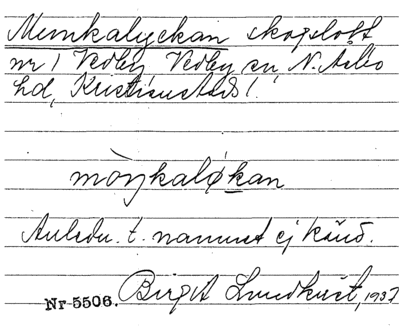 Munkalyckan skogslott
nr 1 Vedby, Vedby sn, N. Åsbo
hd, Kristianstads l.
mòŋkalø̀kan
Anledn. t. namnet ej känd.
Nr 5506. Birgit Lundkvist, 1937